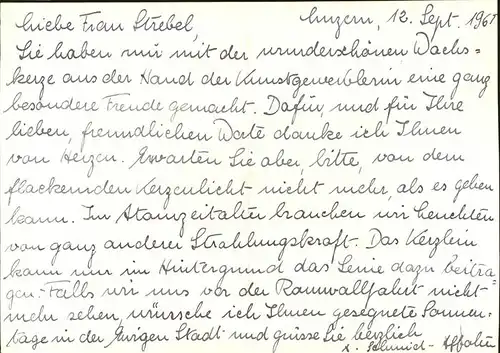 Luzern, 12. Sept. 1961
Liebe Frau Strebel,
Sie haben mir mit der wunderschönen Wachs=
kerze aus der Hand der Kunstgewerblerin eine ganz
besondere Freude gemacht. Dafür, und für Ihre
lieben, freundlichen Worte danke ich Ihnen
von Herzen. Erwarten Sie aber, bitte, von dem
flackernden Kerzenlicht nicht mehr, als es geben
kann. Im Atomzeitalter brauchen wir Leuchten
von ganz anderer Strahlungskraft. Das Kerzlein
kann nur im Hintergrund das Seine dazu beitra=
gen. Falls wir uns vor der Romwallfahrt nicht
mehr sehen, wünsche ich Ihnen gesegnete Sonnen=
tage in der Ewigen Stadt und grüsse Sie herzlich
Schmid-Affolter